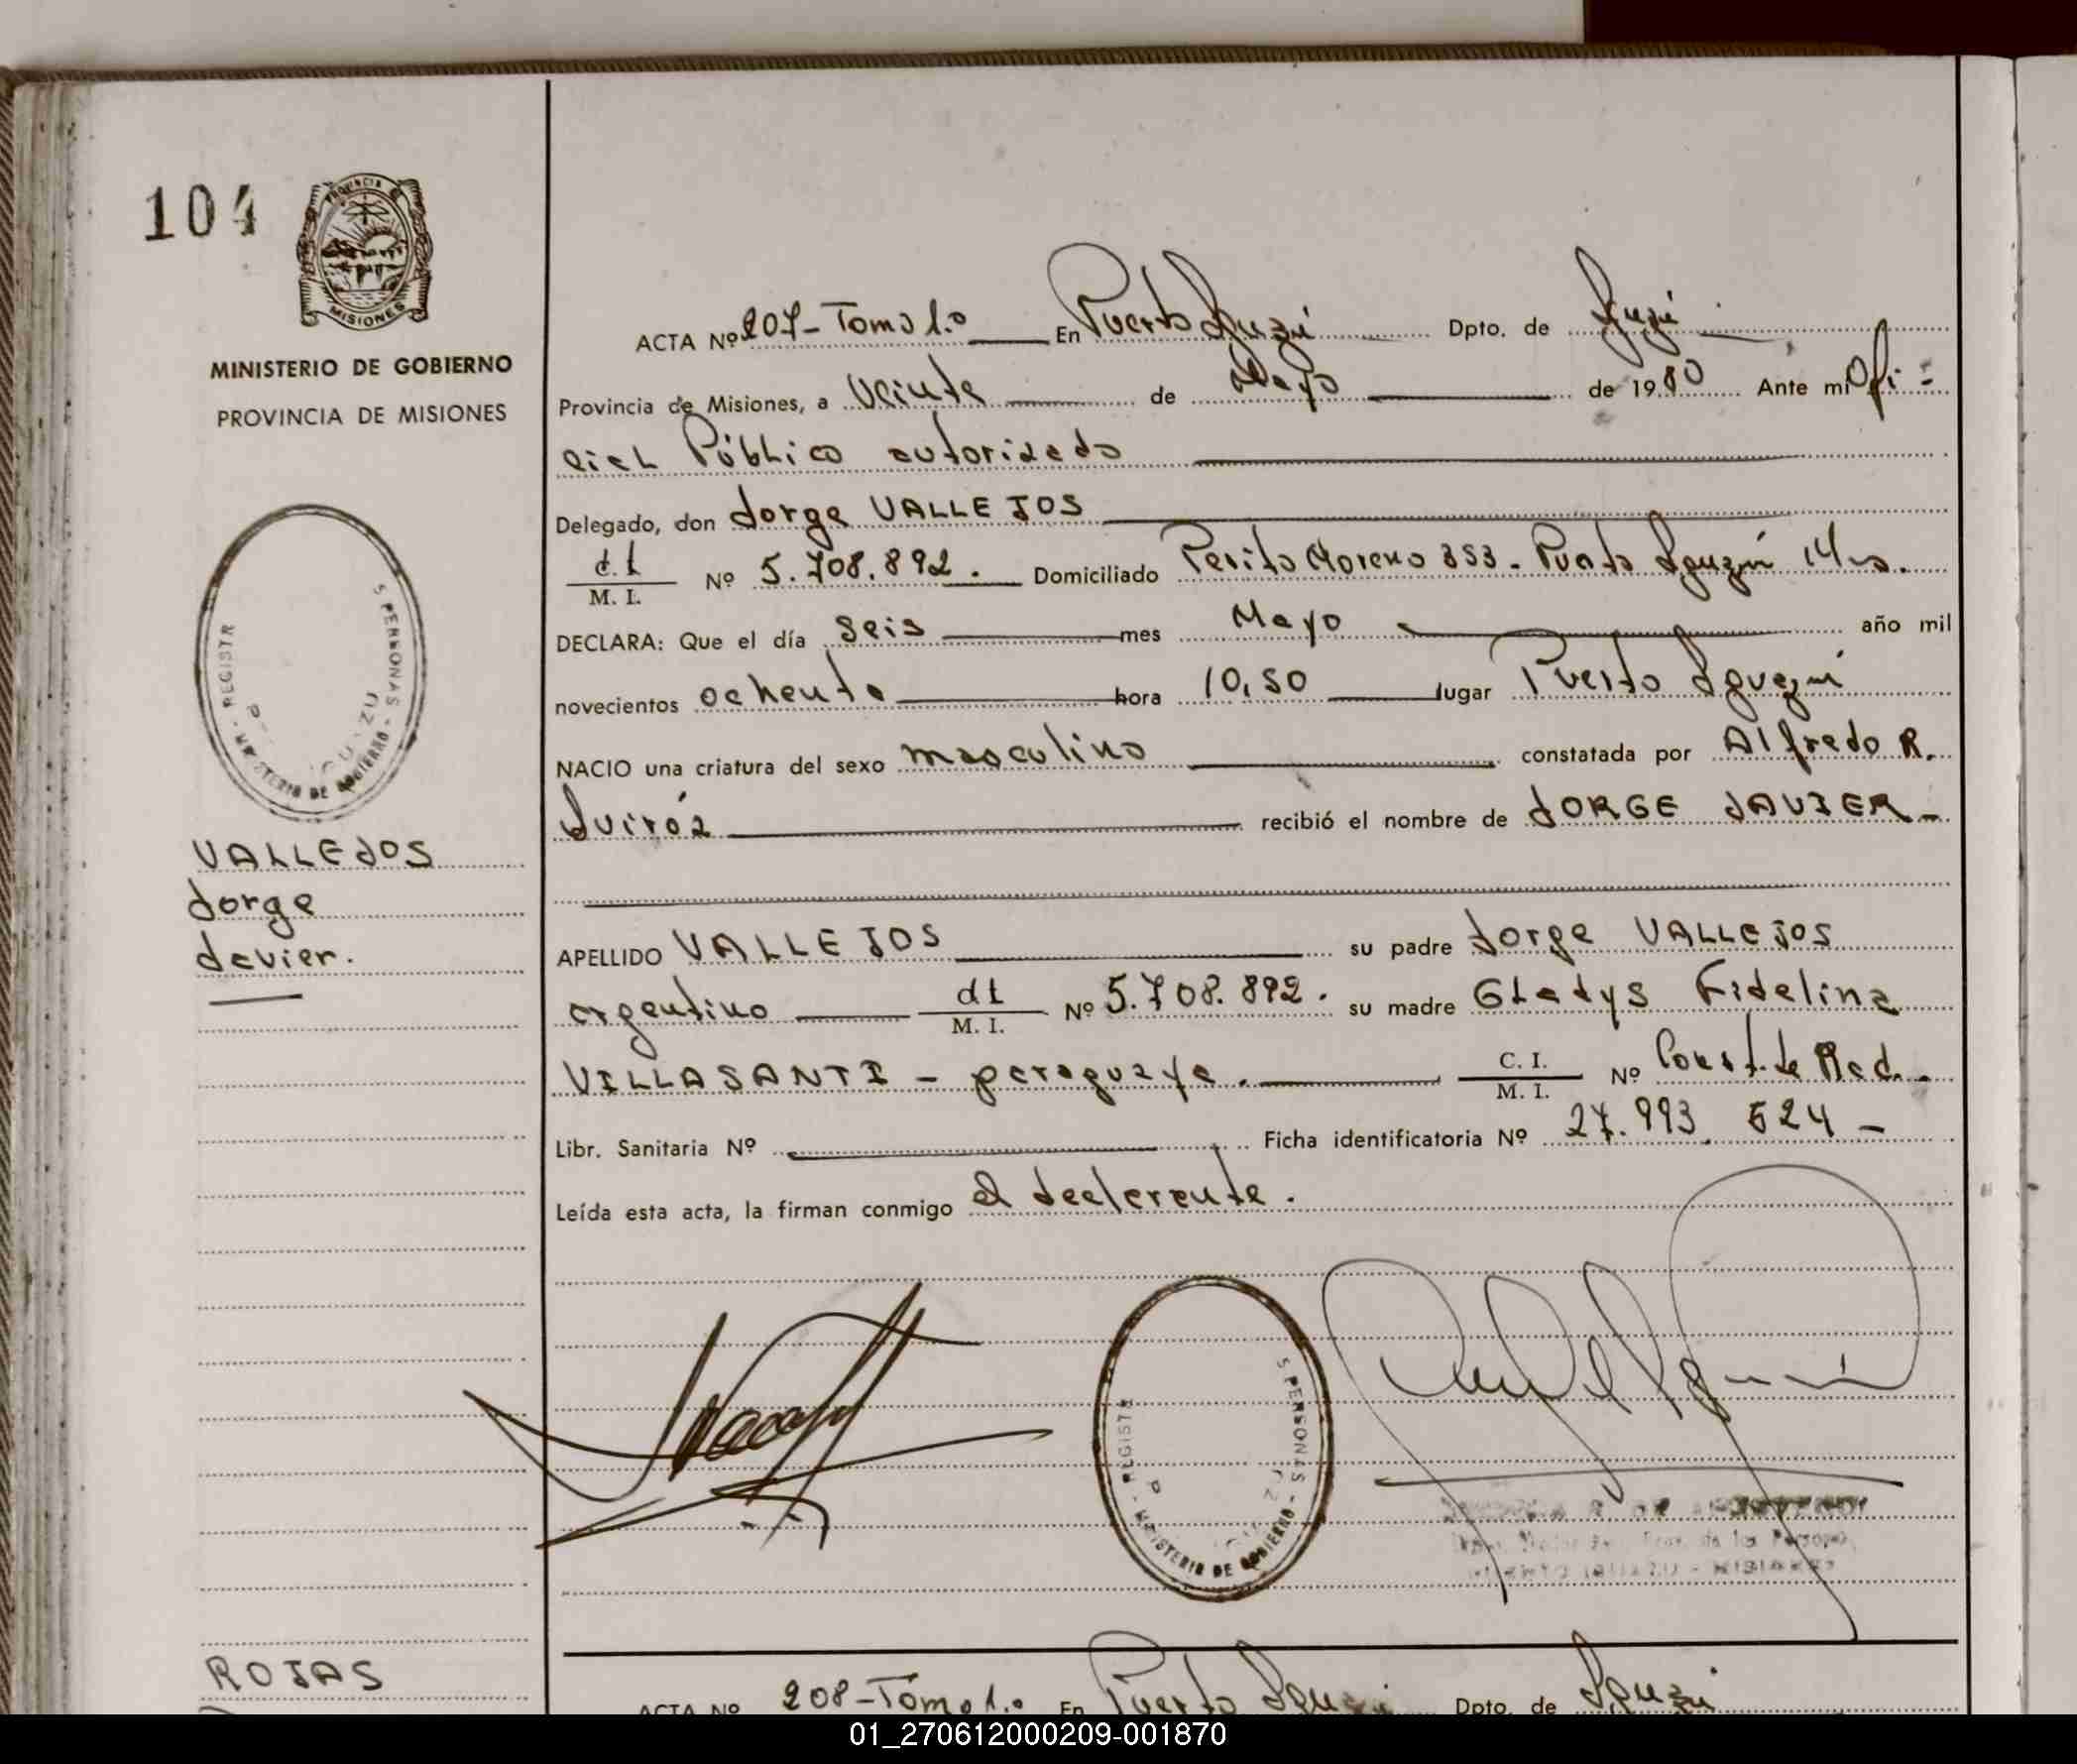 104
PROVINCIA DE
MISIONES
MINISTERIO DE GOBIERNO
PROVINCIA DE MISIONES
ACTA Nº 207-Tomo 1.o En Puerto Iguazú Dpto. de Iguazú
Provincia de Misiones, a Veinte de Mayo de 1980 Ante mi Ofi-
cial Público autorizado
Delegado, don Jorge VALLEJOS
d.t
M. I. Nº 5.708.892. Domiciliado Perito Moreno 353. Puerto Iguazú
DECLARA: Que el día Seis mes Mayo año mil
novecientos ochenta hora 10,50 lugar Puerto Iguazú
NACIO una criatura del sexo masculino constatada por Alfredo R.
Quiróz recibió el nombre de JORGE JAVIER-
VALLEJOS
Jorge
Javier.
APELLIDO VALLEJOS su padre Jorge VALLEJOS
argentino dt
M. I. Nº 5.708.892. su madre Gladys Fidelina
VILLASANTI - paraguaya. C. I.
M. I. Nº Const. de Rad.
Libr. Sanitaria Nº Ficha identificatoria Nº 27.993.524-
Leída esta acta, la firman conmigo el declarante.
REGISTR
S PERSONAS - MINISTERIO DE GOBIERNO
REGISTR
S PERSONAS - MINISTERIO DE GOBIERNO
ROJAS
ACTA Nº 208-Tomo 1.o En Puerto Iguazú Dpto. de Iguazú
01_270612000209-001870